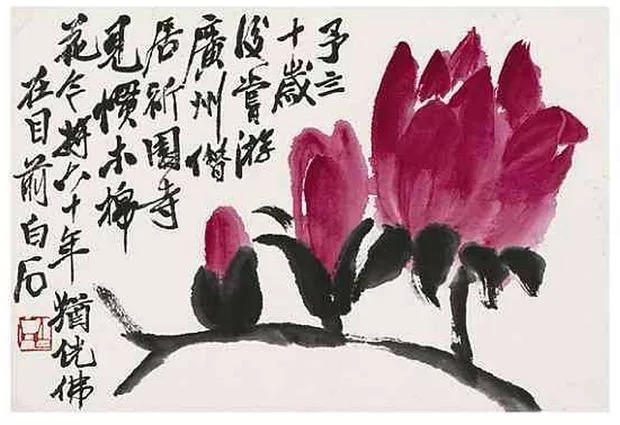 予三
十歲
後嘗游
廣州借
居祈園寺
見慣木棉
花今將六十年猶恍佛
在目前白石